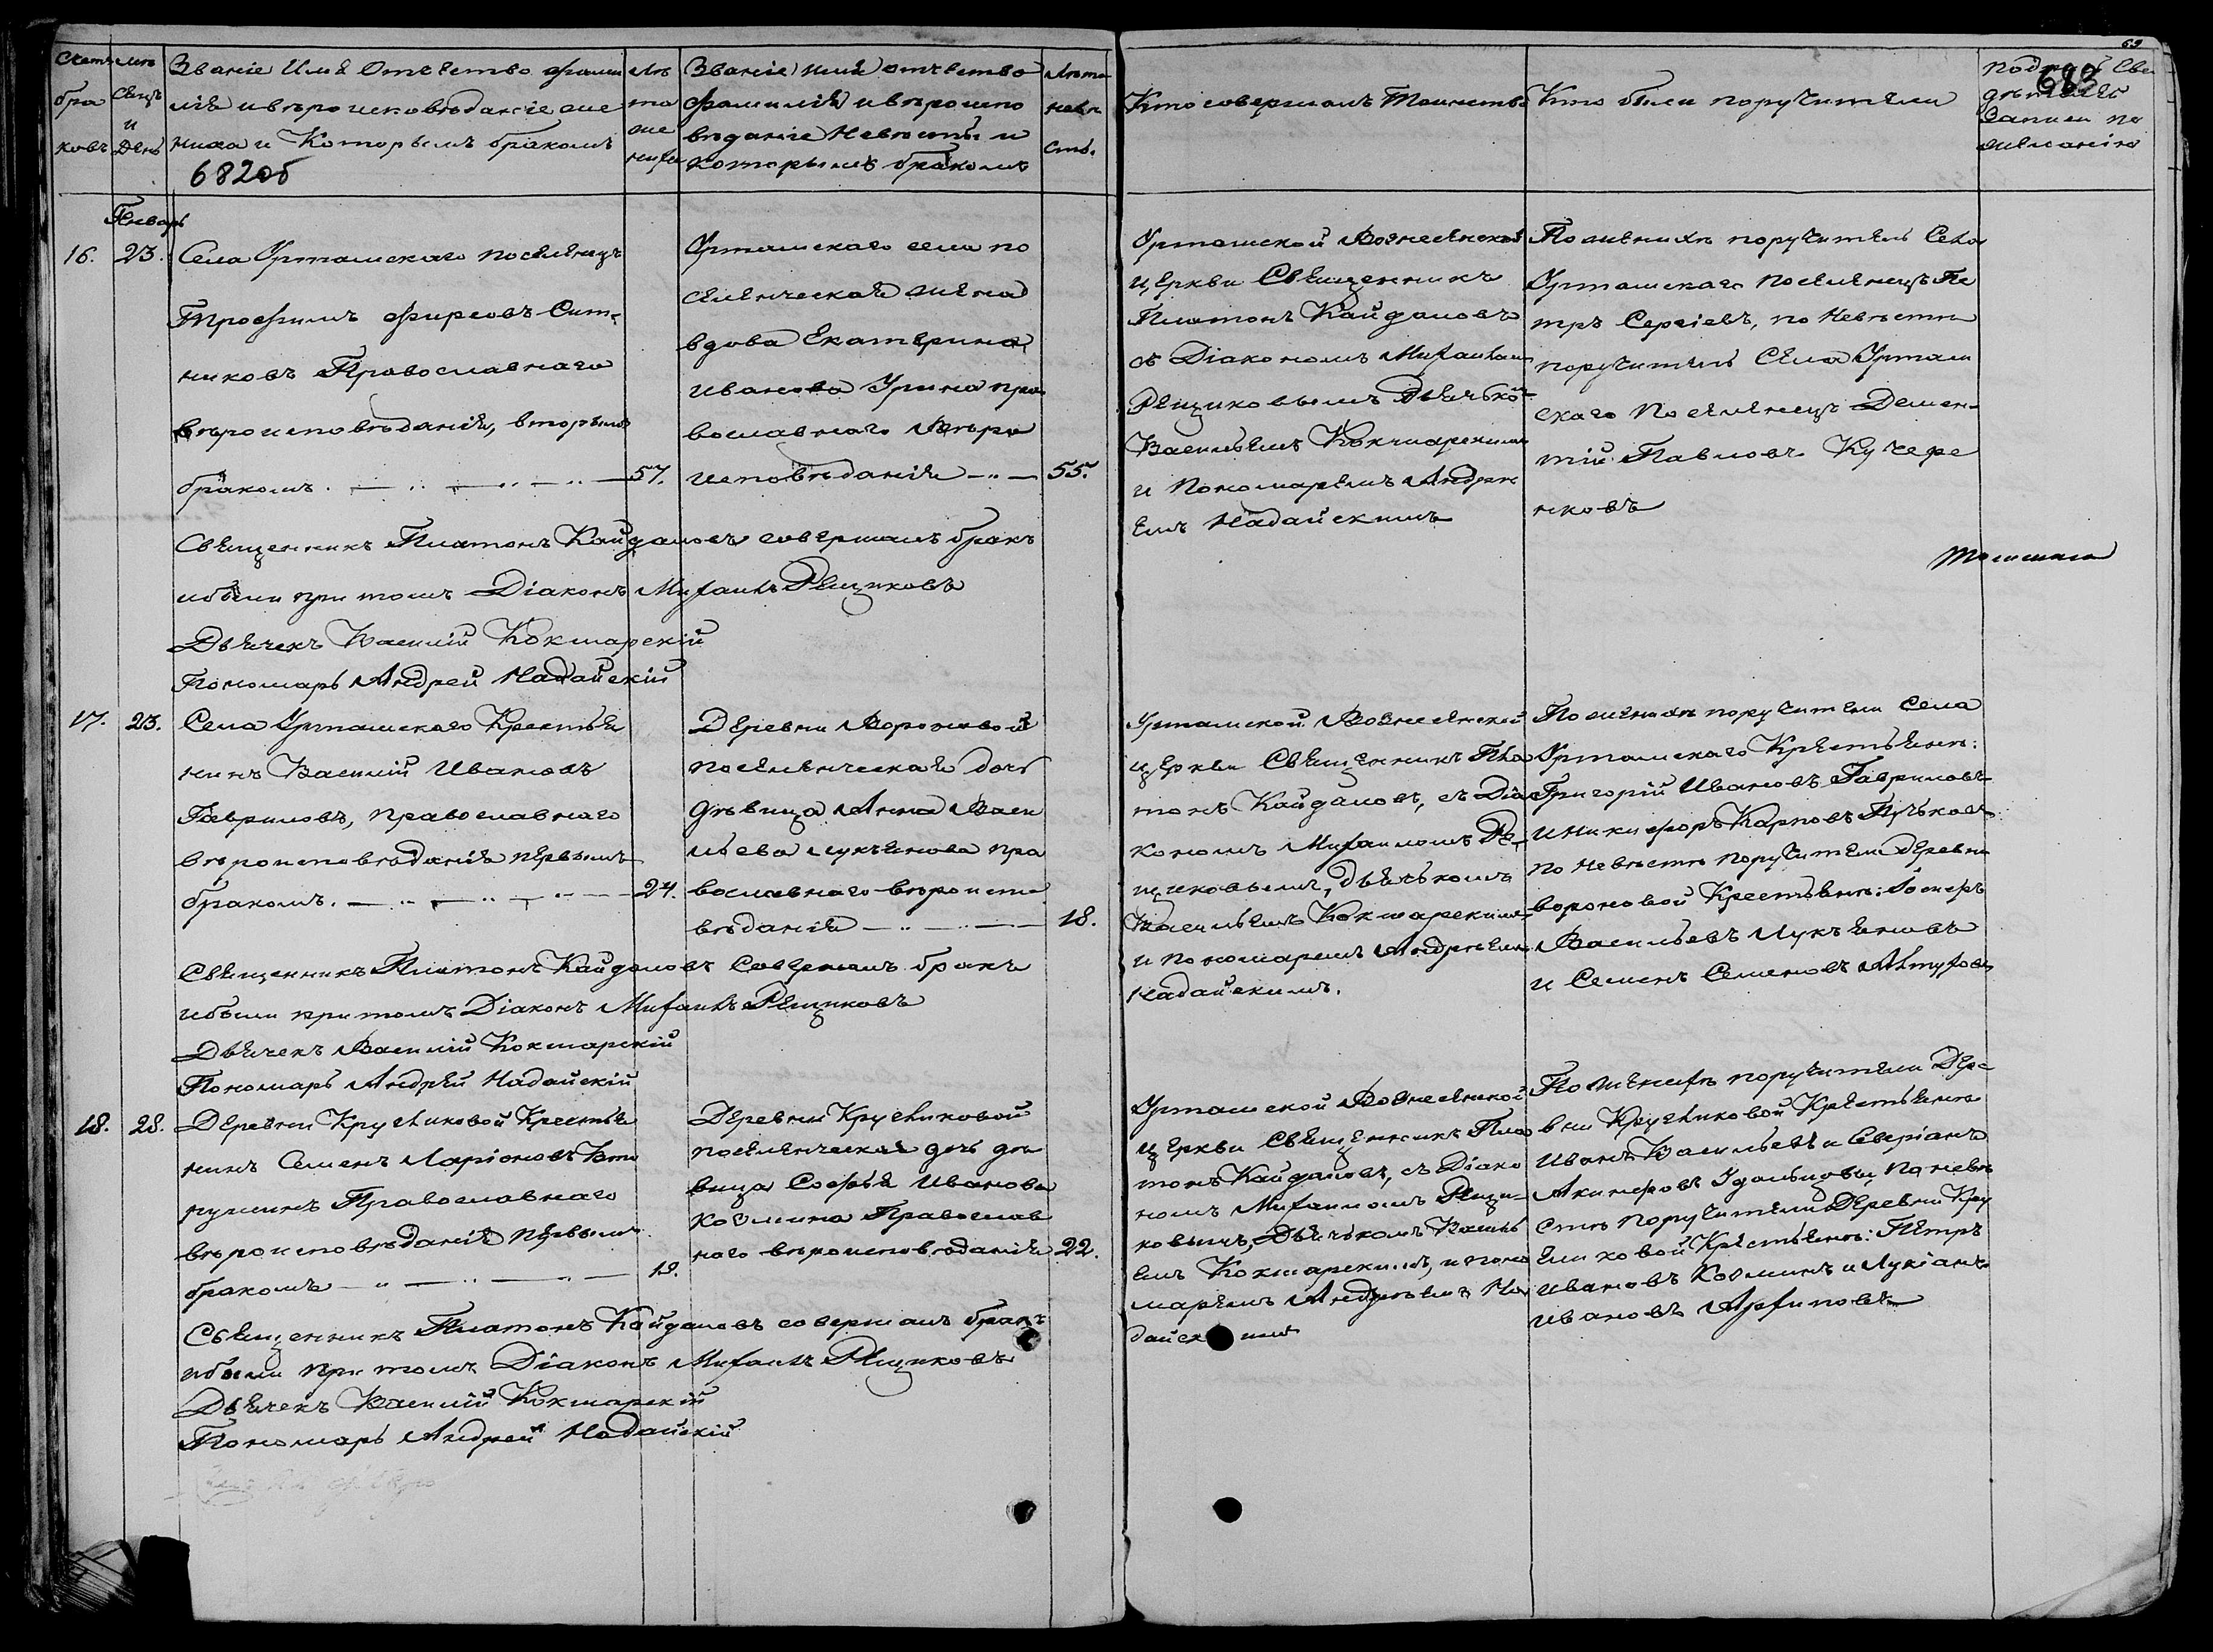 69
683
Счетъ
бра
ковъ
Мѣ
сяцъ
и
День
Званіе Имя Отечество фами
лія и вѣроисповѣданіе же
ниха и Которымъ бракомъ
682 об
Лѣ
та
же
ниха
Званіе, имя отечество
фамилія и вѣроиспо
вѣданіе Невѣсты и
которымъ бракомъ
Лѣта
невѣ
сты.
Кто совершалъ Таинство
Кто были поручители
Подпись Сви
дѣтелей
Записи по
желанію
Январь
16.
23.
Села Уртамскаго поселенецъ
Трофимъ Фирсовъ Сит-
никовъ Православнаго
вѣроисповѣданія, вторымъ
бракомъ.
57.
Уртамскаго села по
селенческая жена
вдова Екатерина
Иванова Урина пра
вославнаго вѣро
исповѣданія
55.
Уртамской Вознесенской
церкви Священникъ
Платонъ Кайдаловъ
съ Діакономъ Михаиломъ
Рещиковымъ Дьячько
Васильемъ Кокшарскимъ
и пономаремъ Андре
емъ Надайскимъ
По женихѣ поручитель Села
Уртамскаго поселенецъ Пе
тръ Сергіевъ, по Невѣстѣ
поручитель Села Уртам
скаго Поселенецъ Демен-
тій Павловъ Кучере
нковъ
Священникъ Платонъ Кайдаловъ совершалъ бракъ
и были при томъ Діаконъ Михаилъ Рещиковъ
Дьячекъ Василій Кокшарскій
Пономарь Андрей Надайскій
17.
23.
Села Уртамскаго Крестья
нинъ Василій Ивановъ
Гавриловъ, православнаго
вѣроисповѣданія первымъ
бракомъ.
24.
Деревни Вороновой
поселенческая дочь
дѣвица Анна Васи
льева Лукьянова пра
вославнаго вѣроиспо
вѣданія
18.
Уртамской Вознесенской
церкви Священникъ Пла
тонъ Кайдаловъ, съ Діа
кономъ Михаиломъ Ре-
щиковымъ, дьячькомъ
Васильемъ Кокшарскимъ
и пономаремъ Андреемъ
Надайскимъ.
По женихѣ поручители Села
Уртамскаго Крестьяне:
Григорій Ивановъ Гавриловъ
и Никифоръ Карповъ
по невѣстѣ поручители Деревни
вороновой Крестьяне:
Васильевъ Лукьяновъ
и Семенъ Семеновъ
Священникъ Платонъ Кайдаловъ Совершалъ бракъ
и были при томъ Діаконъ Михаилъ Рещиковъ
Дьячекъ Василій Кокшарскій
Пономарь Андрей Надайскій
18.
28.
Деревни Кругликовой Крестья
нинъ Семенъ Ларіоновъ
Православнаго
вѣроисповѣданія первымъ
бракомъ
19.
Деревни Кругликовой
поселенческая дочь дѣ
вица Софья Иванова
Козмина Православ
наго вѣроисповѣданія
22.
Уртамской Вознесенской
церкви Священникъ Пла
тонъ Кайдаловъ, съ Діако
номъ Михаиломъ Рещи-
ковымъ, Дьячькомъ Василь
емъ Кокшарскимъ, и поно
маремъ Андреемъ На
дайскимъ
По женихѣ поручители Дере
вни Кругликовой Крестьяне
Иванъ Васильевъ и Северіанъ
по невѣ
стѣ поручители Деревни Кру
гликовой Крестьяне: Петръ
Ивановъ Козминъ и Лукіанъ
Ивановъ Архиповъ
Священникъ Платонъ Кайдаловъ совершалъ бракъ
и были при томъ Діаконъ Михаилъ Рещиковъ
Дьячекъ Василій Кокшарскій
Пономарь Андрей Надайскій